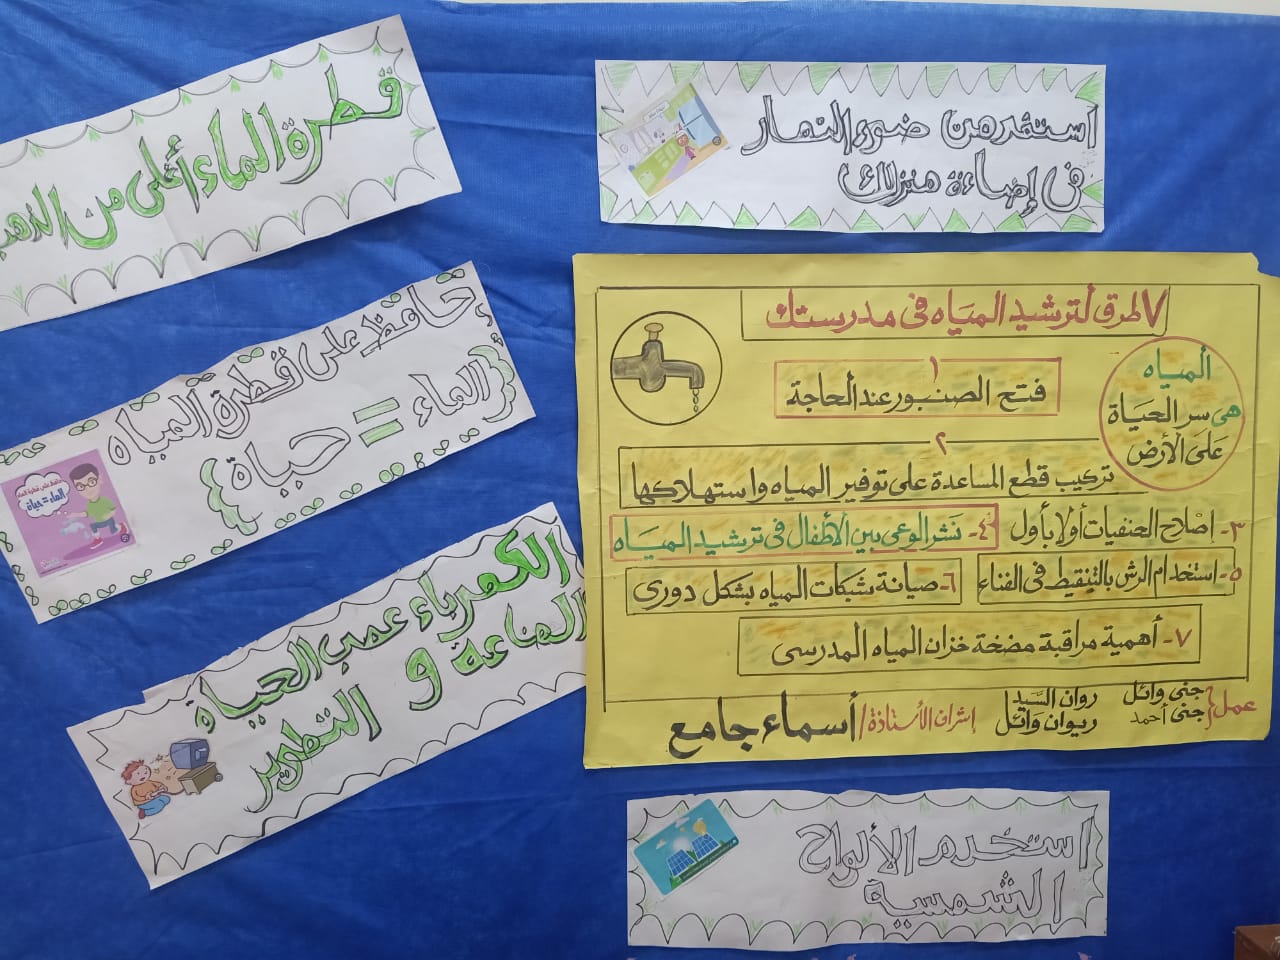 قطرة الماء أغلى من الذهب
استمر من ضوء النهار
فى إضاءة منزلك
حافظ على قطرة المياه
الماء = حياة
حافظ على قطرة الماء
الماء = حياة
الكهرباء عصب الحياة
الهامة و التطوير
٧ طرق لترشيد المياه فى مدرستك
المياه
هى سر الحياة
على الأرض
١
فتح الصنبور عند الحاجة
٢
تركيب قطع المساعدة على توفير المياه واستهلاكها
٣- إصلاح الحنفيات أولا بأول
٤- نشر الوعى بين الأطفال فى ترشيد المياه
٥- استخدام الرش بالتنقيط فى الفناء
٦- صيانة شبكات المياه بشكل دورى
٧- أهمية مراقبة مضخة خزان المياه المدرسى
عمل
جنى وائل
جنى أحمد
روان السيد
ريوان وائل
إشراف الأستاذة/ أسماء جامع
استخدم الألواح
الشمسية